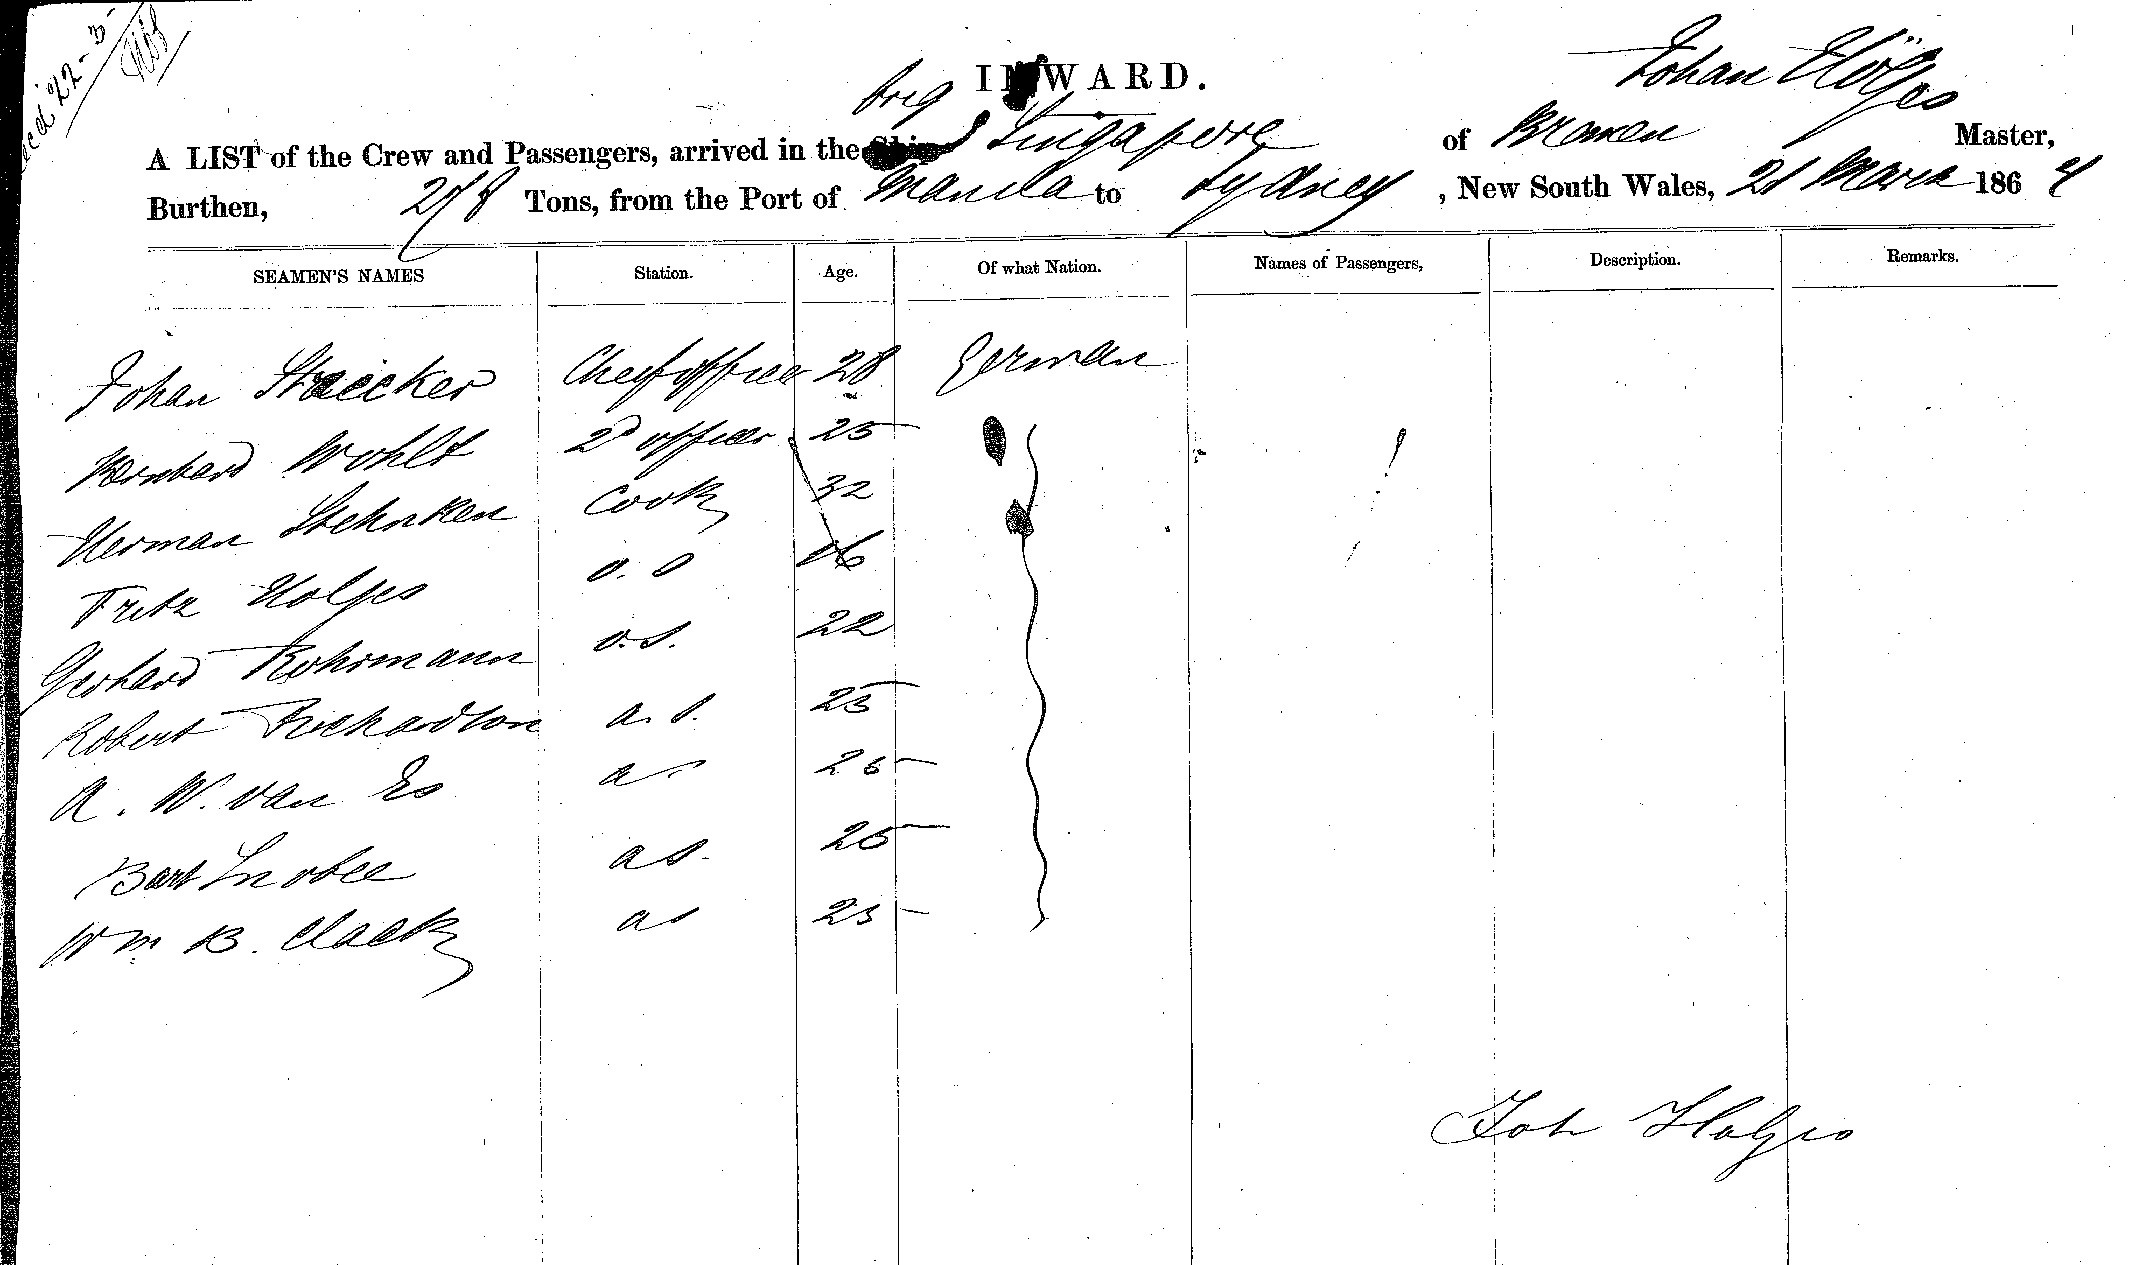 22-3
INWARD.
Johan Höljes
A LIST of the Crew and Passengers, arrived in the brig Singapore of Bremen Master,
Burthen, 278 Tons, from the Port of Manila to Sydney, New South Wales, 21 March 1864
SEAMEN'S NAMES Station. Age. Of what Nation. Names of Passengers, Description. Remarks.
Johan Straecker Cheif officer 28 German
Bernhard Wohlt 2d officer 25
Herman Stehnken Cook 32
Fritz Holjes o. s 16
Gerhard Rohrmann o.s. 22
Robert Richardson a. s. 25
A. W. van Es as 25
Bart as. 25
Wm B. Clack as 25
Joh Holjes